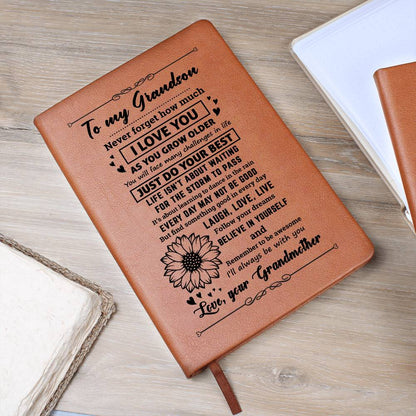 To my Grandson
Never forget how much
I LOVE YOU
AS YOU GROW OLDER
You will face many challenges in life
JUST DO YOUR BEST
LIFE ISN'T ABOUT WAITING
FOR THE STORM TO PASS
It's about learning to dance in the rain
EVERY DAY MAY NOT BE GOOD
But find something good in every day
LAUGH, LOVE, LIVE
Follow your dreams
BELIEVE IN YOURSELF
and
Remember to be awesome
I'll always be with you
Love, your Grandmother